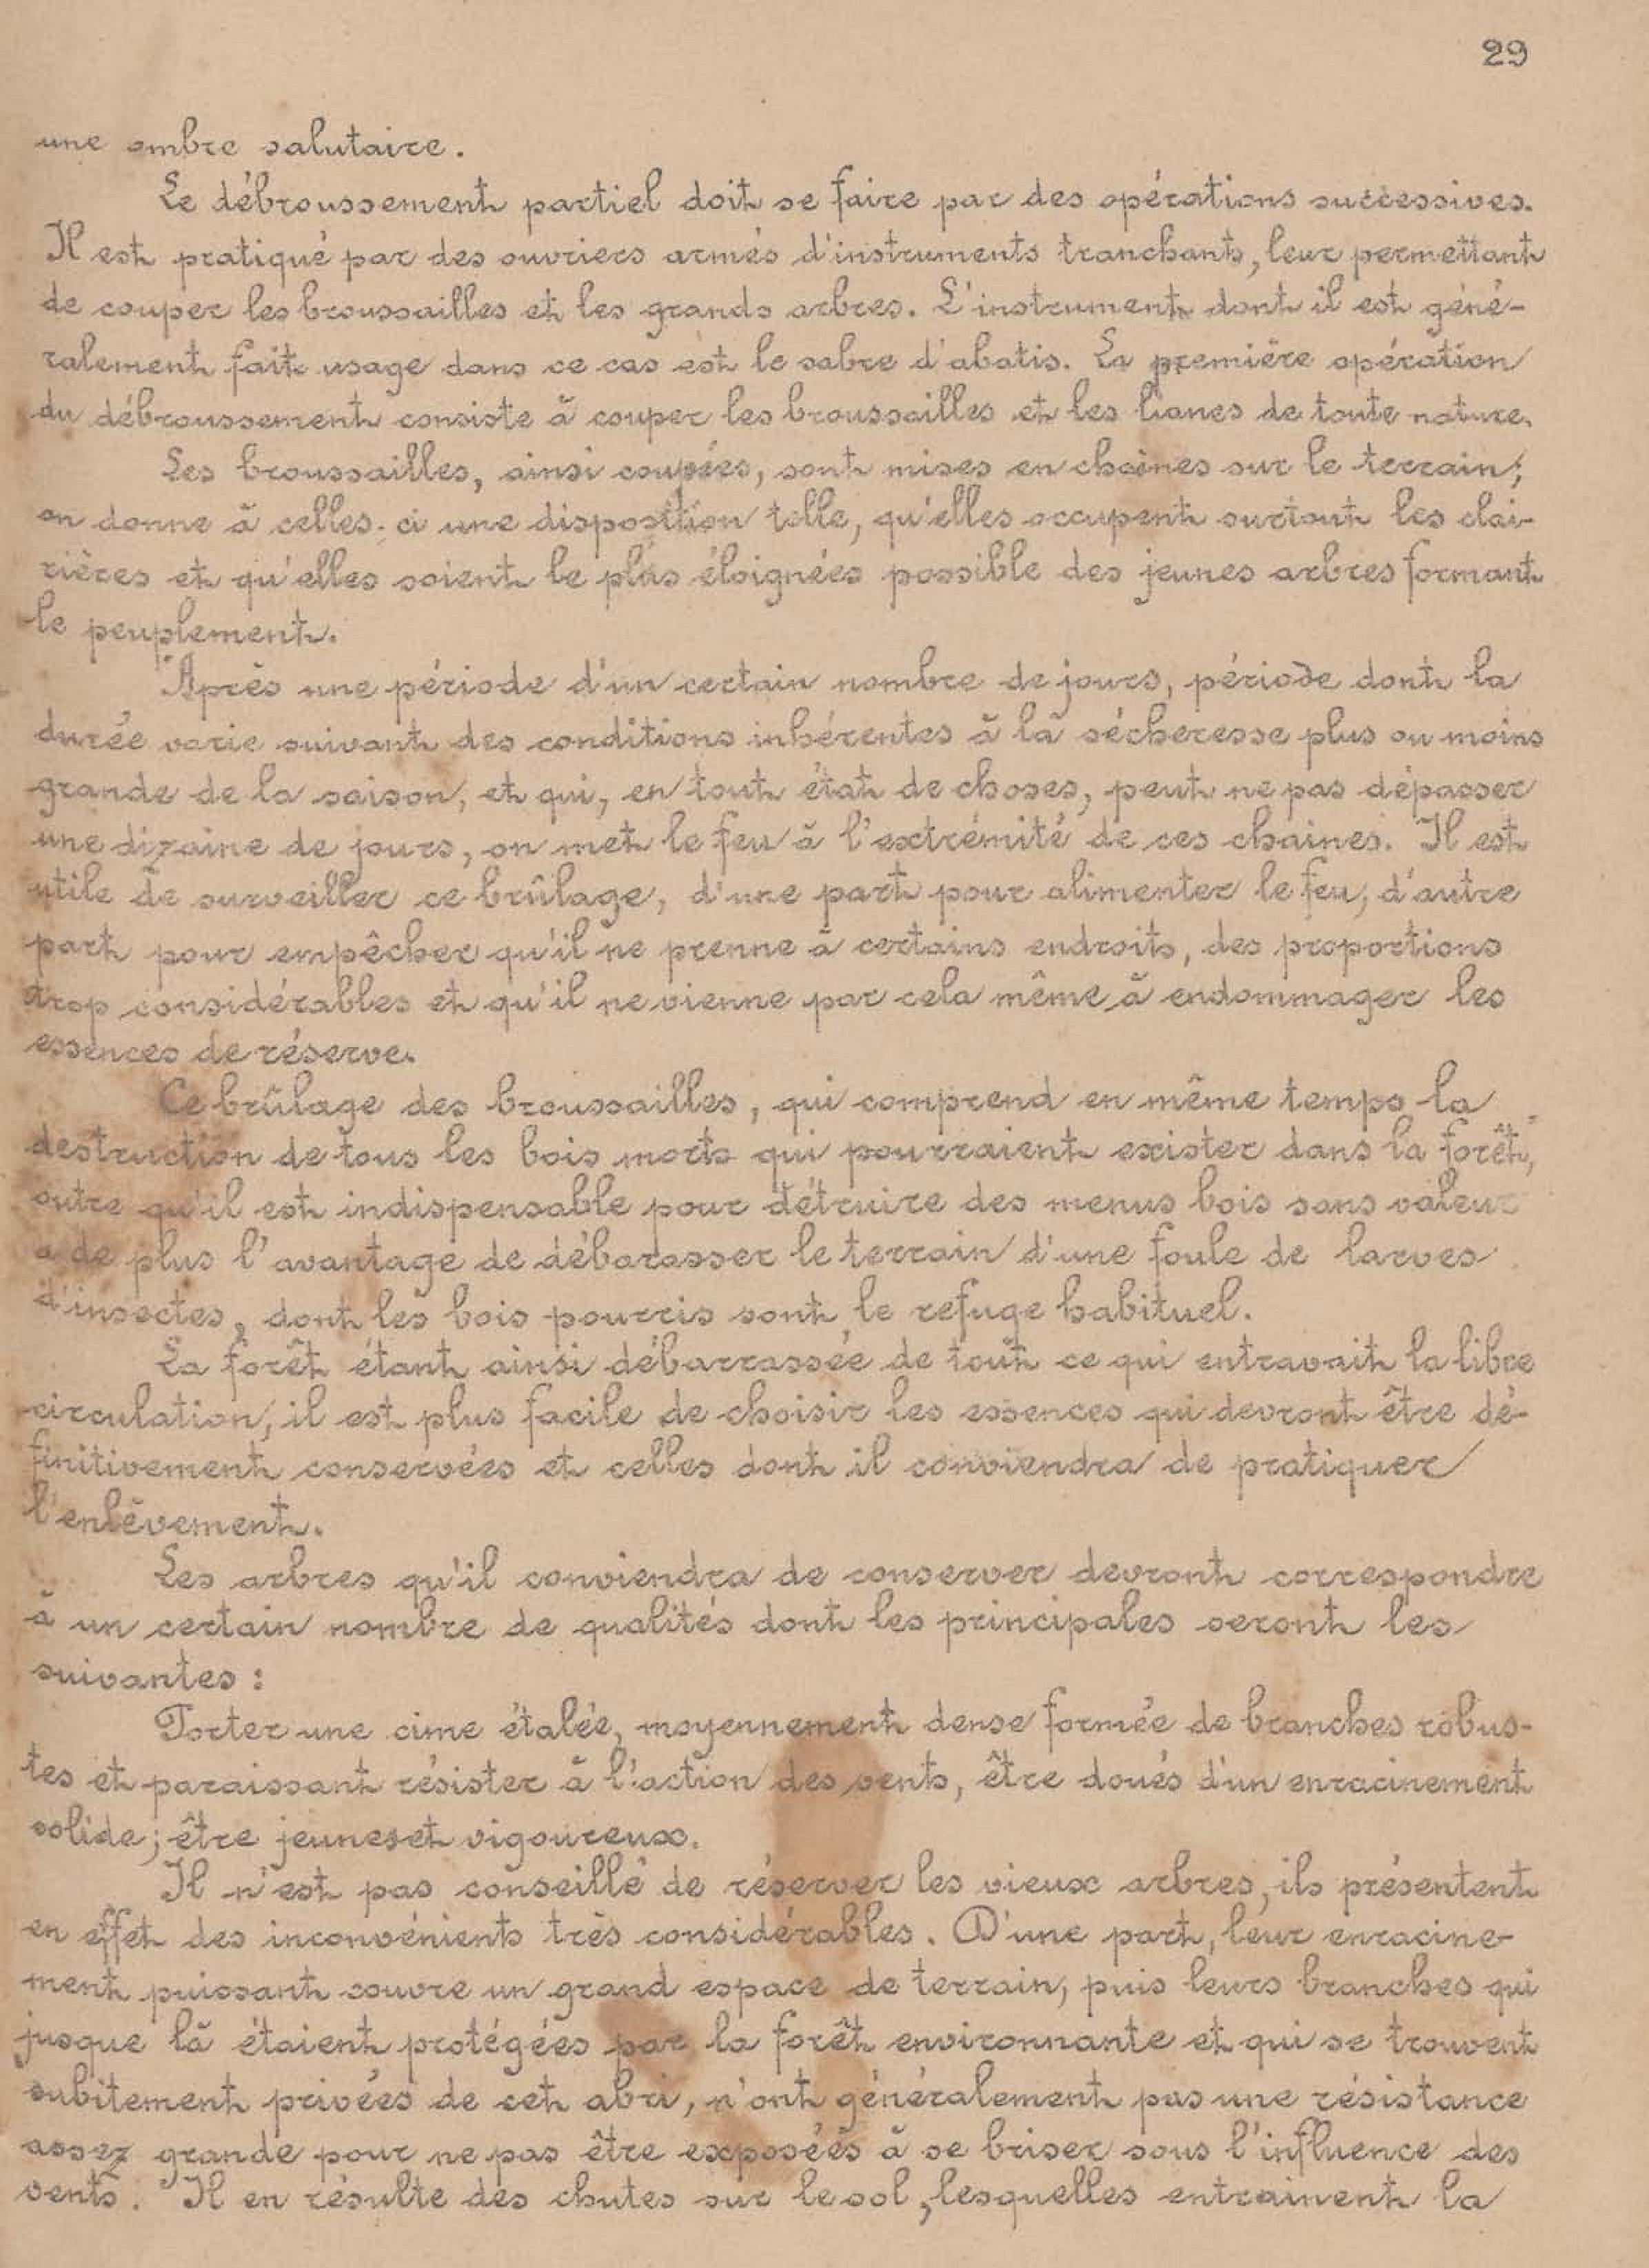 29
une ombre salutaire.
Le débroussement partiel doit se faire par des opérations successives.
Il est pratiqué par des ouvriers armés d'instruments tranchants, leur permettant
de couper les broussailles et les grands arbres. L'instrument dont il est géné-
ralement fait usage dans ce cas est le sabre d'abatis. La première opération
du débroussement consiste à couper les broussailles et les lianes de toute nature.
Les broussailles, ainsi coupées, sont mises en chaines sur le terrain;
on donne à celles-ci une disposition telle, qu'elles occupent surtout les clai-
rières et qu'elles soient le plus éloignées possible des jeunes arbres formant
le peuplement.
Après une période d'un certain nombre de jours, période dont la
durée varie suivant des conditions inhérentes à la sécheresse plus ou moins
grande de la saison, et qui, en tout état de choses, peut ne pas dépasser
une dizaine de jours, on met le feu à l'extrémité de ces chaines. Il est
utile de surveiller ce brûlage, d'une part pour alimenter le feu, d'autre
part pour empêcher qu'il ne prenne à certains endroits, des proportions
trop considérables et qu'il ne vienne par cela même à endommager les
essences de réserve.
Ce brûlage des broussailles, qui comprend en même temps la
destruction de tous les bois morts qui pourraient exister dans la forêt,
outre qu'il est indispensable pour détruire des menus bois sans valeur
a de plus l'avantage de débarasser le terrain d'une foule de larves
d'insectes, dont les bois pourris sont le refuge habituel.
La forêt étant ainsi débarrassée de tout ce qui entravait la libre
circulation, il est plus facile de choisir les essences qui devront être dé-
finitivement conservées et celles dont il conviendra de pratiquer
l'enlèvement.
Les arbres qu'il conviendra de conserver devront correspondre
à un certain nombre de qualités dont les principales seront les
suivantes :
Porter une cime étalée, moyennement dense formée de branches robus-
tes et paraissant résister à l'action des vents, être doués d'un enracinement
solide; être jeunes et vigoureux.
Il n'est pas conseillé de réserver les vieux arbres, ils présentent
en effet des inconvénients très considérables. D'une part, leur enracine-
ment puissant couvre un grand espace de terrain, puis leurs branches qui
jusque là étaient protégées par la forêt environnante et qui se trouvent
subitement privées de cet abri, n'ont généralement pas une résistance
assez grande pour ne pas être exposées à se briser sous l'influence des
vents. Il en résulte des chutes sur le sol, lesquelles entrainent la